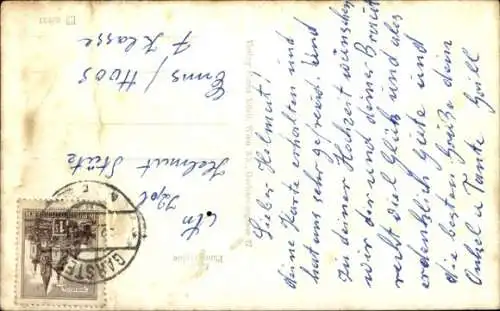 Lieber Helmut!
Deine Karte erhalten und
hat uns sehr gefreut. Und
zu deiner Hochzeit wünschen
wir dir und deiner Braut
recht viel Glück und alles
erdenklich Gute und
die besten Grüße dein
Onkel u Tante Grill
An
Helmut
Enns /
7 Klasse
GARSTEN